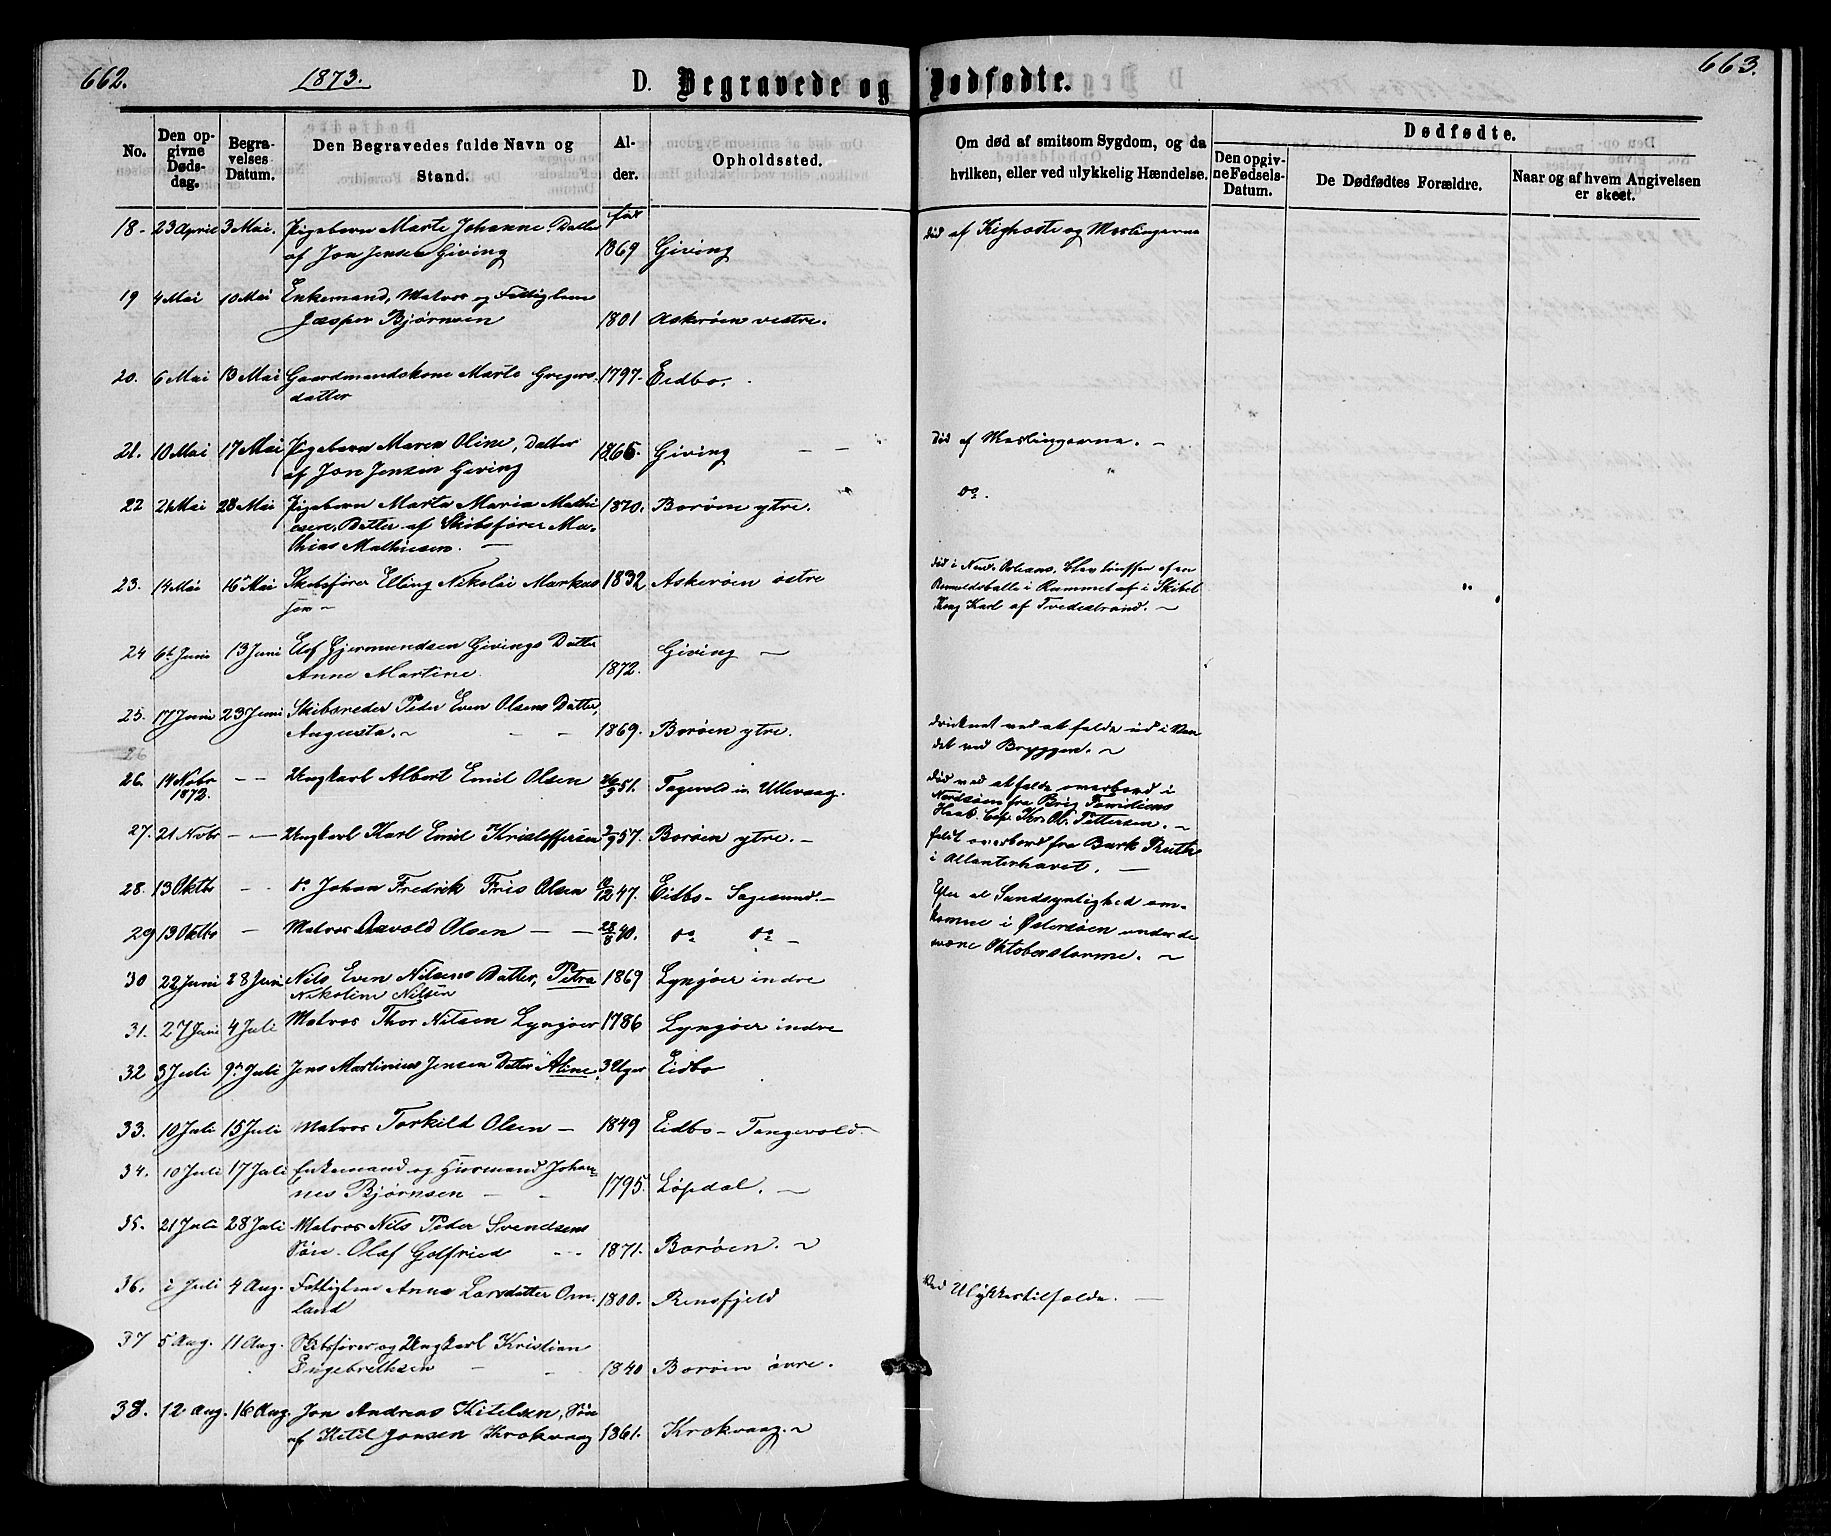 662.
1873.
D. Begravede og Dødfødte.
663.
No.
Den opgivne Dødsdag.
Begravelses Datum.
Den Begravedes fulde Navn og Stand.
Alder.
Opholdssted.
Om død af smitsom Sygdom, og da hvilken, eller ved ulykkelig Hændelse.
Dødfødte.
Den opgivne Fødsels-Datum.
De Dødfødtes Forældre.
Naar og af hvem Angivelsen er skeet.
18. 23 April 3 Mai. Pigebarn Marte Johanne Datter født død af Kighoste og Meslingerne
af Jon Jensen Giving 1869 Giving
19 4 Mai 10 Mai Enkemand, Matros og Fattiglem
Jæsper Bjørnsen 1801 Askerøen vestre.
20. 6 Mai 13 Mai Gaardmandskone Marte Gregers- 1797. Eidbo.
datter
21. 10 Mai 17 Mai Pigebarn Maren Oline, Datter 1865. Giving — — Død af Meslingerne. —
af Jon Jensen Giving
22 21 Mai 28 Mai Pigebarn Marta Maria Mathi- 1870. Borøen ytre. do.
esen, Datter af Skibsfører Ma-
thias Mathiesen. —
23. 14 Mai 16 Mai Skibsfører Elling Nikolai Markus 1832 Askerøen østre død i New-Orleans, blev truffen af en
sen — Bomuldsballe i Rummet af i Skibet
Kong Karl af Tvedestrand. —
24 6te Juni 13 Juni Elef Gjermundsen Givings Datter Giving —
Anne Martine. 1872.
25. 17 Juni 23 Juni Skibsreder Peder Even Olsens Datter, druknet ved at falde ud i Van-
Augusta. — — — 1869. Borøen ytre. det ved Bryggen. —
26
26. 14 Novbr — — Ungkarl Albert Emil Olsen 26/9 51. Tagevold in Ullevaag. død ved at falde overbord i
1872. Nordsøen fra Brig Familiens
Haab Cap. Kr. Ol. Pettersen. —
27. 21 Novbr — — Ungkarl Karl Emil Kristoffersen 3/9 57. Borøen ytre. — faldt overbord fra Bark Ruth
i Atlanterhavet. —
28. 13 Oktbr — do Johan Fredrik Friis Olsen 12/12 47. Eidbo- Sagesund. — Efter al Sandsynlighed om-
29 13 Oktbr — Matros Aavold Olsen — — 28/8 40. do do — komne i Østersøen under de
svære Oktoberstorme. —
30 22 Juni 28 Juni Nils Even Nilsens Datter, Petra 1869 Lyngøer indre
Nikoline Nilsen
31. 27 Juni 4 Juli Matros Thor Nilsen Lyngøer 1786 Lyngøer indre
32 3 Juli 9 Juli Jens Martinius Jensen Datter Aline, 3 Uger Eidbo
33. 10 Juli 15 Juli Matros Torkild Olsen — 1849 Eidbo- Tangevold.
34. 10 Juli 17 Juli Enkemand og Husmand Johan-
nes Bjørnsen — — 1795. Løpdal. —
35. 21 Juli 28 Juli Matros Nils Peder Svendsens
Søn Olaf Gotfried — 1871. Borøen. —
36. i Juli 4 Aug. Fattiglem Anne Larsdatter Om- Ved Ulykkestilfælde. —
land 1800. Rensfjeld
37 5 Aug. 11 Aug. Skibsfører og Ungkarl Kristian
Engebrethsen — — 1840 Borøen øvre.
38. 12 Aug. 16 Aug. Jon Andreas Kitelsen, Søn
af Ketil Jonsen Krokvaag 1861. Krokvaag. —